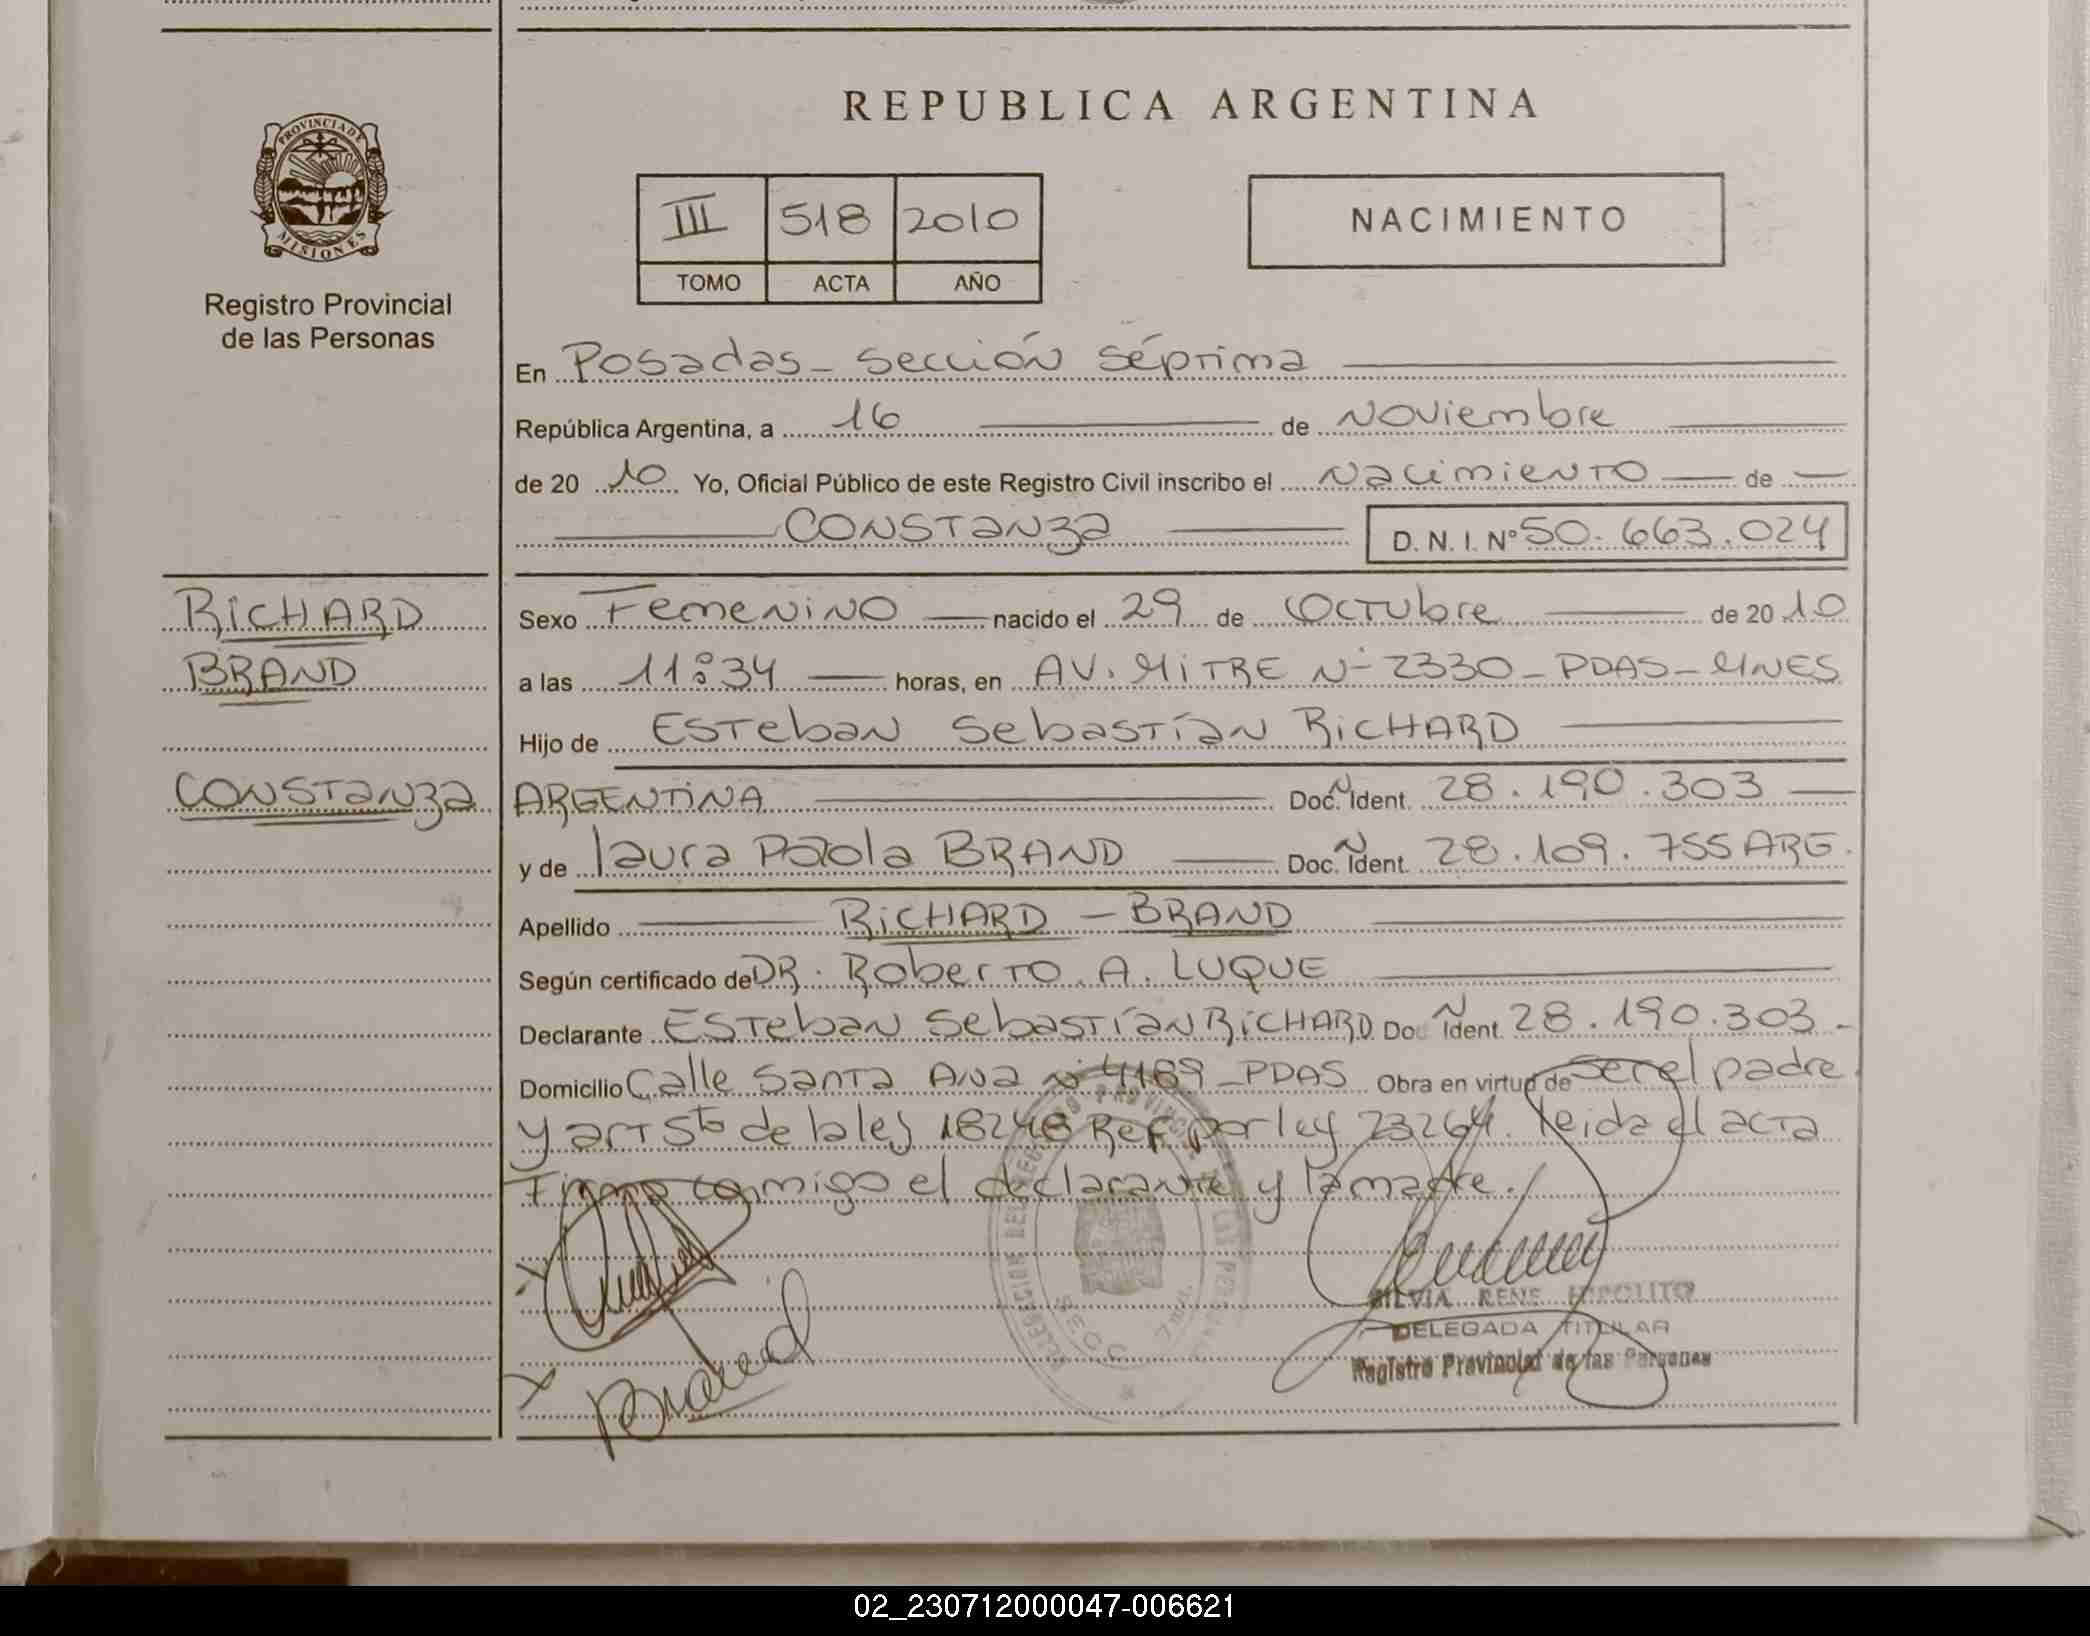 REPUBLICA ARGENTINA
PROVINCIA DE
MISIONES
Registro Provincial
de las Personas
III 518 2010
TOMO ACTA AÑO
NACIMIENTO
En Posadas - Sección Séptima
República Argentina, a 16 de Noviembre
de 20 10 Yo, Oficial Público de este Registro Civil inscribo el Nacimiento de
Constanza D. N. I. Nº 50.663.024
RICHARD
BRAND
Constanza
Sexo Femenino nacido el 29 de Octubre de 20 10
a las 11:34 horas, en AV. MITRE Nº 2330 - PDAS - MNES
Hijo de Esteban Sebastían RICHARD
ARGENTINA Doc. Ident. N 28.190.303
y de Laura Paola BRAND Doc. Ident. N 28.109.755 ARG.
Apellido RICHARD - BRAND
Según certificado de DR. Roberto A. LUQUE
Declarante Esteban Sebastían RICHARD Doc Ident. N 28.190.303 -
Domicilio Calle Santa Ana Nº 4189 - PDAS Obra en virtud de ser el padre
y art 5to de la ley 18248 Ref por ley 23264. Leida el acta
Firma conmigo el declarante y la madre.
SILVIA RENE HIPOLITO
DELEGADA TITULAR
Registro Provincial de las Personas
02_230712000047-006621